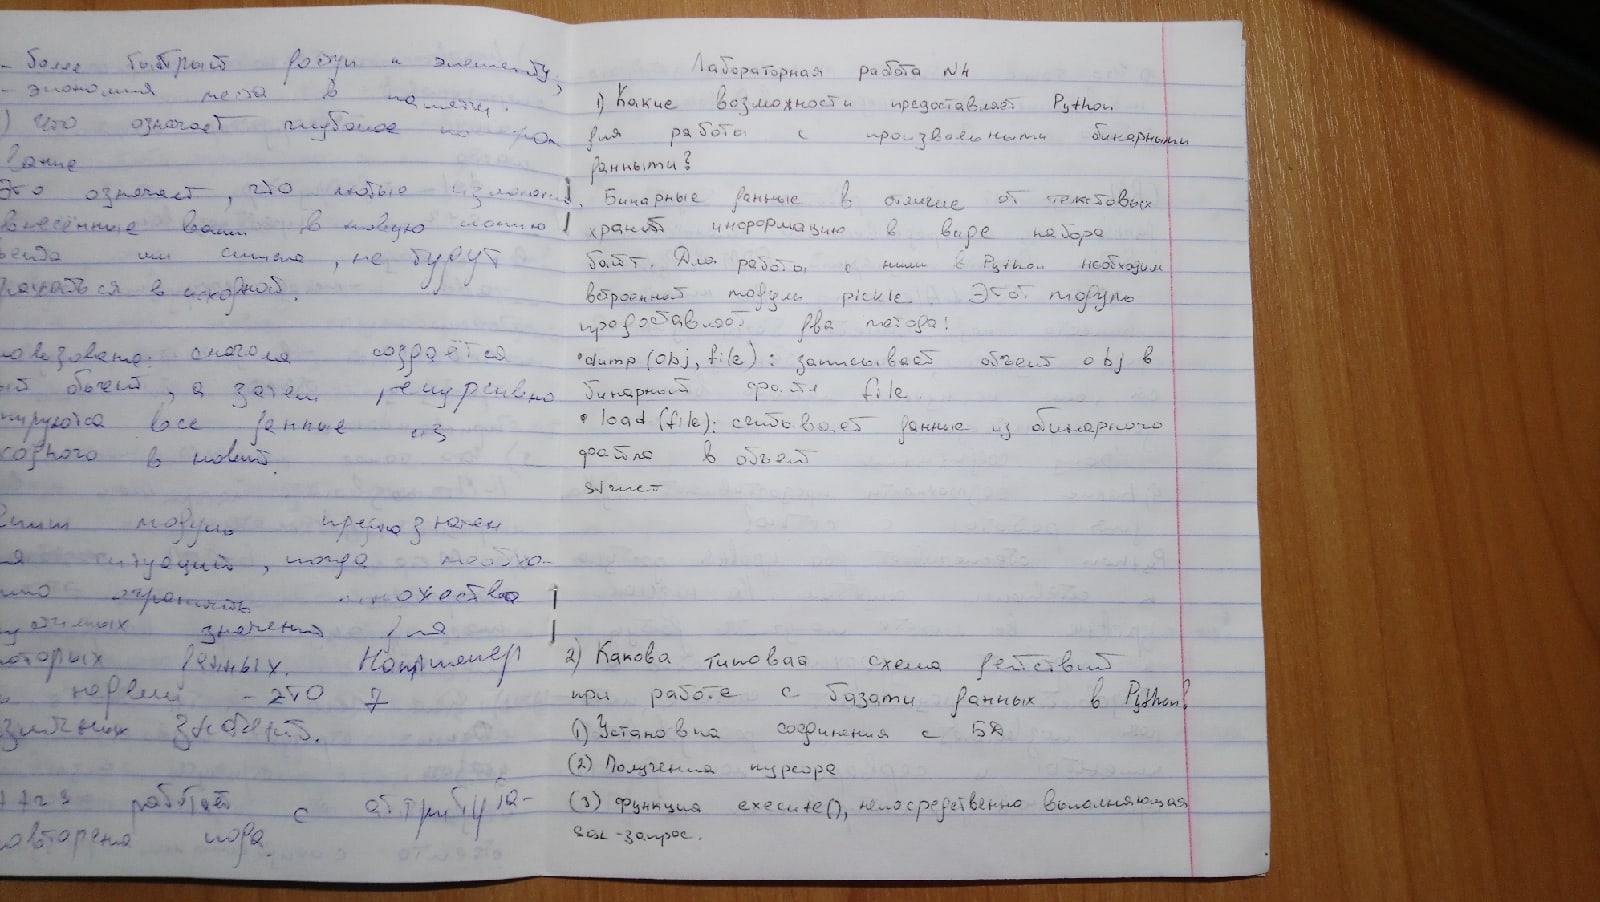 - более быстрый доступ к элементу;
- экономия места в памяти.
) Что означает глубокое
Это означает, что любые
внесённые вами в новую копию
не будут
в исходной.
сначала создаётся
объект, а затем рекурсивно
все данные из
в новый.
модуль предназначен
ситуаций, когда необхо-
множества
значений для
которых данных. Например
недели - это 7
значений.
работает с атрибута-
повторена кода
Лабораторная работа №4
1) Какие возможности предоставляет Python
для работы с произвольными бинарными
данными?
Бинарные данные в отличие от текстовых
хранят информацию в виде набора
байт. Для работы с ними в Python необходим
встроенный модуль pickle. Этот модуль
предоставляет два метода:
• dump(obj, file): записывает объект obj в
бинарный файл file.
• load(file): считывает данные из бинарного
файла в объект
2) Какова типовая схема действий
при работе с базами данных в Python?
(1) Установка соединения с БД
(2) Получения курсора
(3) Функция execute(), непосредственно выполняющая
SQL-запрос.